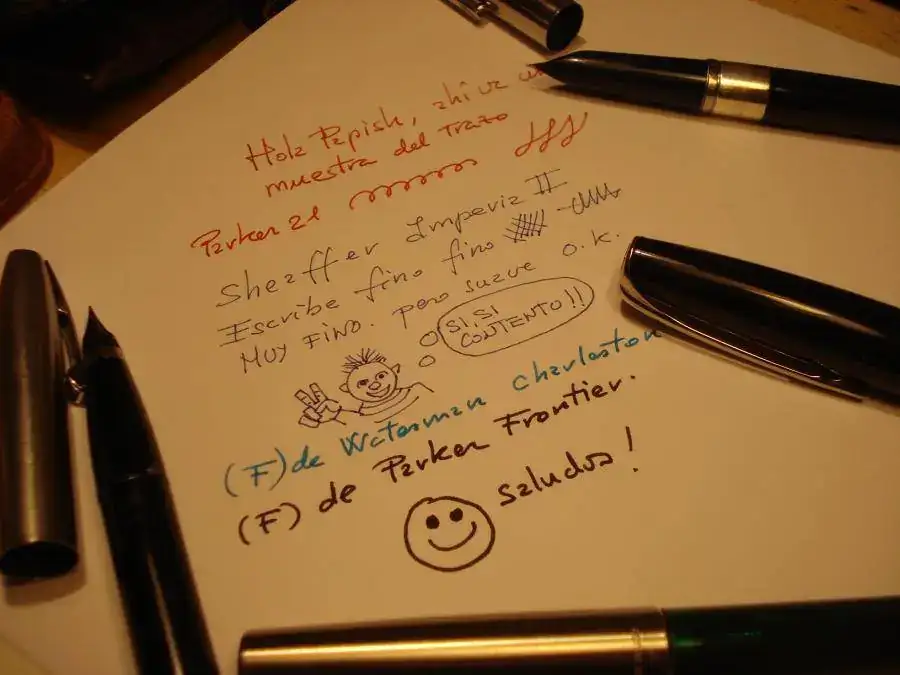 Hola Papish, ahí va
muestra del trazo
Parker 21
Sheaffer Imperia II
Escribe fino fino
MUY FINO. pero suave O.K.
SI, SI
CONTENTO!!
(F) de Waterman Charleston
(F) de Parker Frontier.
saludos!